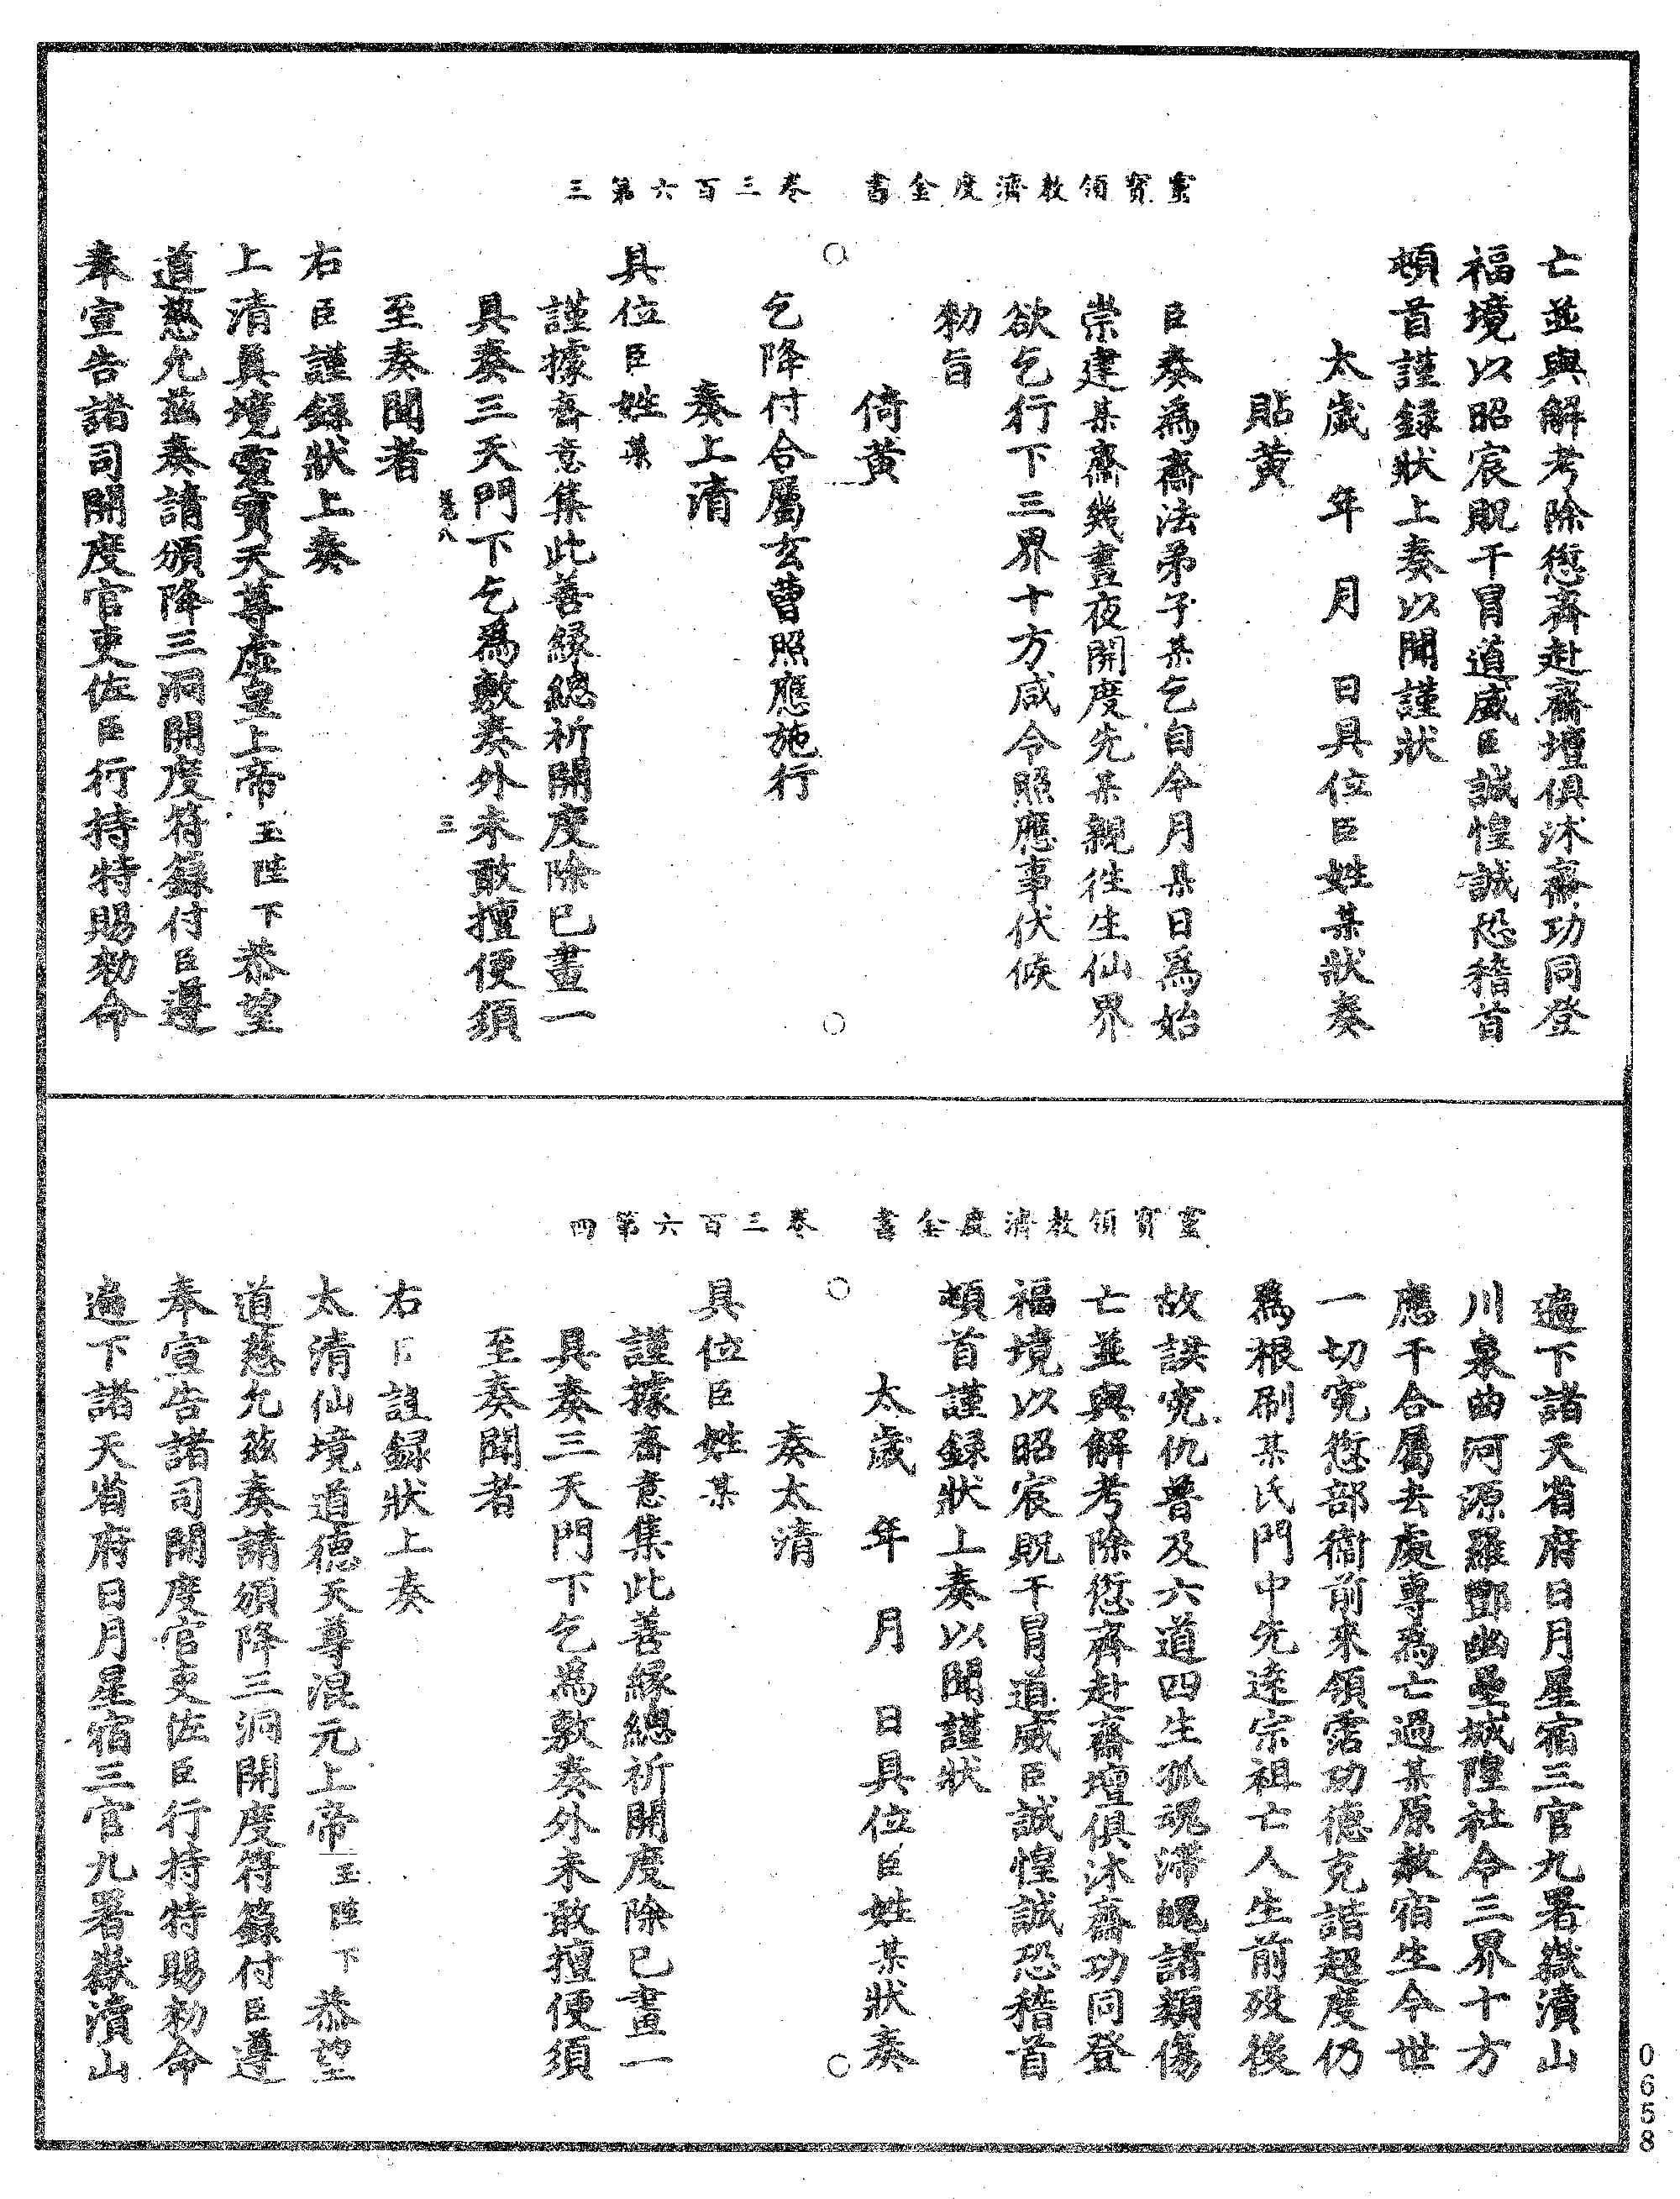 靈寶領教濟度金書　卷三百六第三
亡並與解考除愆齊赴齋壇俱沐齋功同登
福境以昭宸貺干冒道威臣誠惶誠恐稽首
頓首謹録狀上奏以聞謹狀
太歲　年　月　日具位臣姓某狀奏
貼黄
臣奏爲齋法弟子某乞自今月某日爲始
崇建某齋幾晝夜開度先某親徃生仙界
欲乞行下三界十方咸令照應事伏候
勑旨
倚黄
乞降付合屬玄曹照應施行
奏上清
具位臣姓某
謹據齋意集此善縁總祈開度除已畫一
具奏三天門下乞爲敷奏外未敢擅便須
至奏聞者
右臣謹録狀上奏
上清真境靈寳天尊虛皇上帝玉陛下恭望
道慈允兹奏請頒降三洞開度符籙付臣遵
奉宣告諸司開度官吏佐臣行持特賜勑命
靈寶領教濟度金書　卷三百六第四
遍下諸天省府日月星宿三官九署嶽瀆山
川泉曲河源羅酆幽壘城隍社令三界十方
應干合屬去處專爲亡過某原赦宿生今世
一切寃愆部衞前來領霑功德克諧超度仍
爲根刷某氏門中先逺宗祖亡人生前歿後
故誤寃仇普及六道四生孤魂滯魄諸類傷
亡並與解考除愆齊赴齋壇俱沐齋功同登
福境以昭宸貺干冒道威臣誠惶誠恐稽首
頓首謹録狀上奏以聞謹狀
太歲　年　月　日具位臣姓某狀奏
奏太清
具位臣姓某
謹據齋意集此善縁總祈開度除已畫一
具奏三天門下乞爲敷奏外未敢擅便須
至奏聞者
右臣謹録狀上奏
太清仙境道德天尊混元上帝玉陛下恭望
道慈允兹奏請頒降三洞開度符籙付臣遵
奉宣告諸司開度官吏佐臣行持特賜勑命
遍下諸天省府日月星宿三官九署嶽瀆山
0658